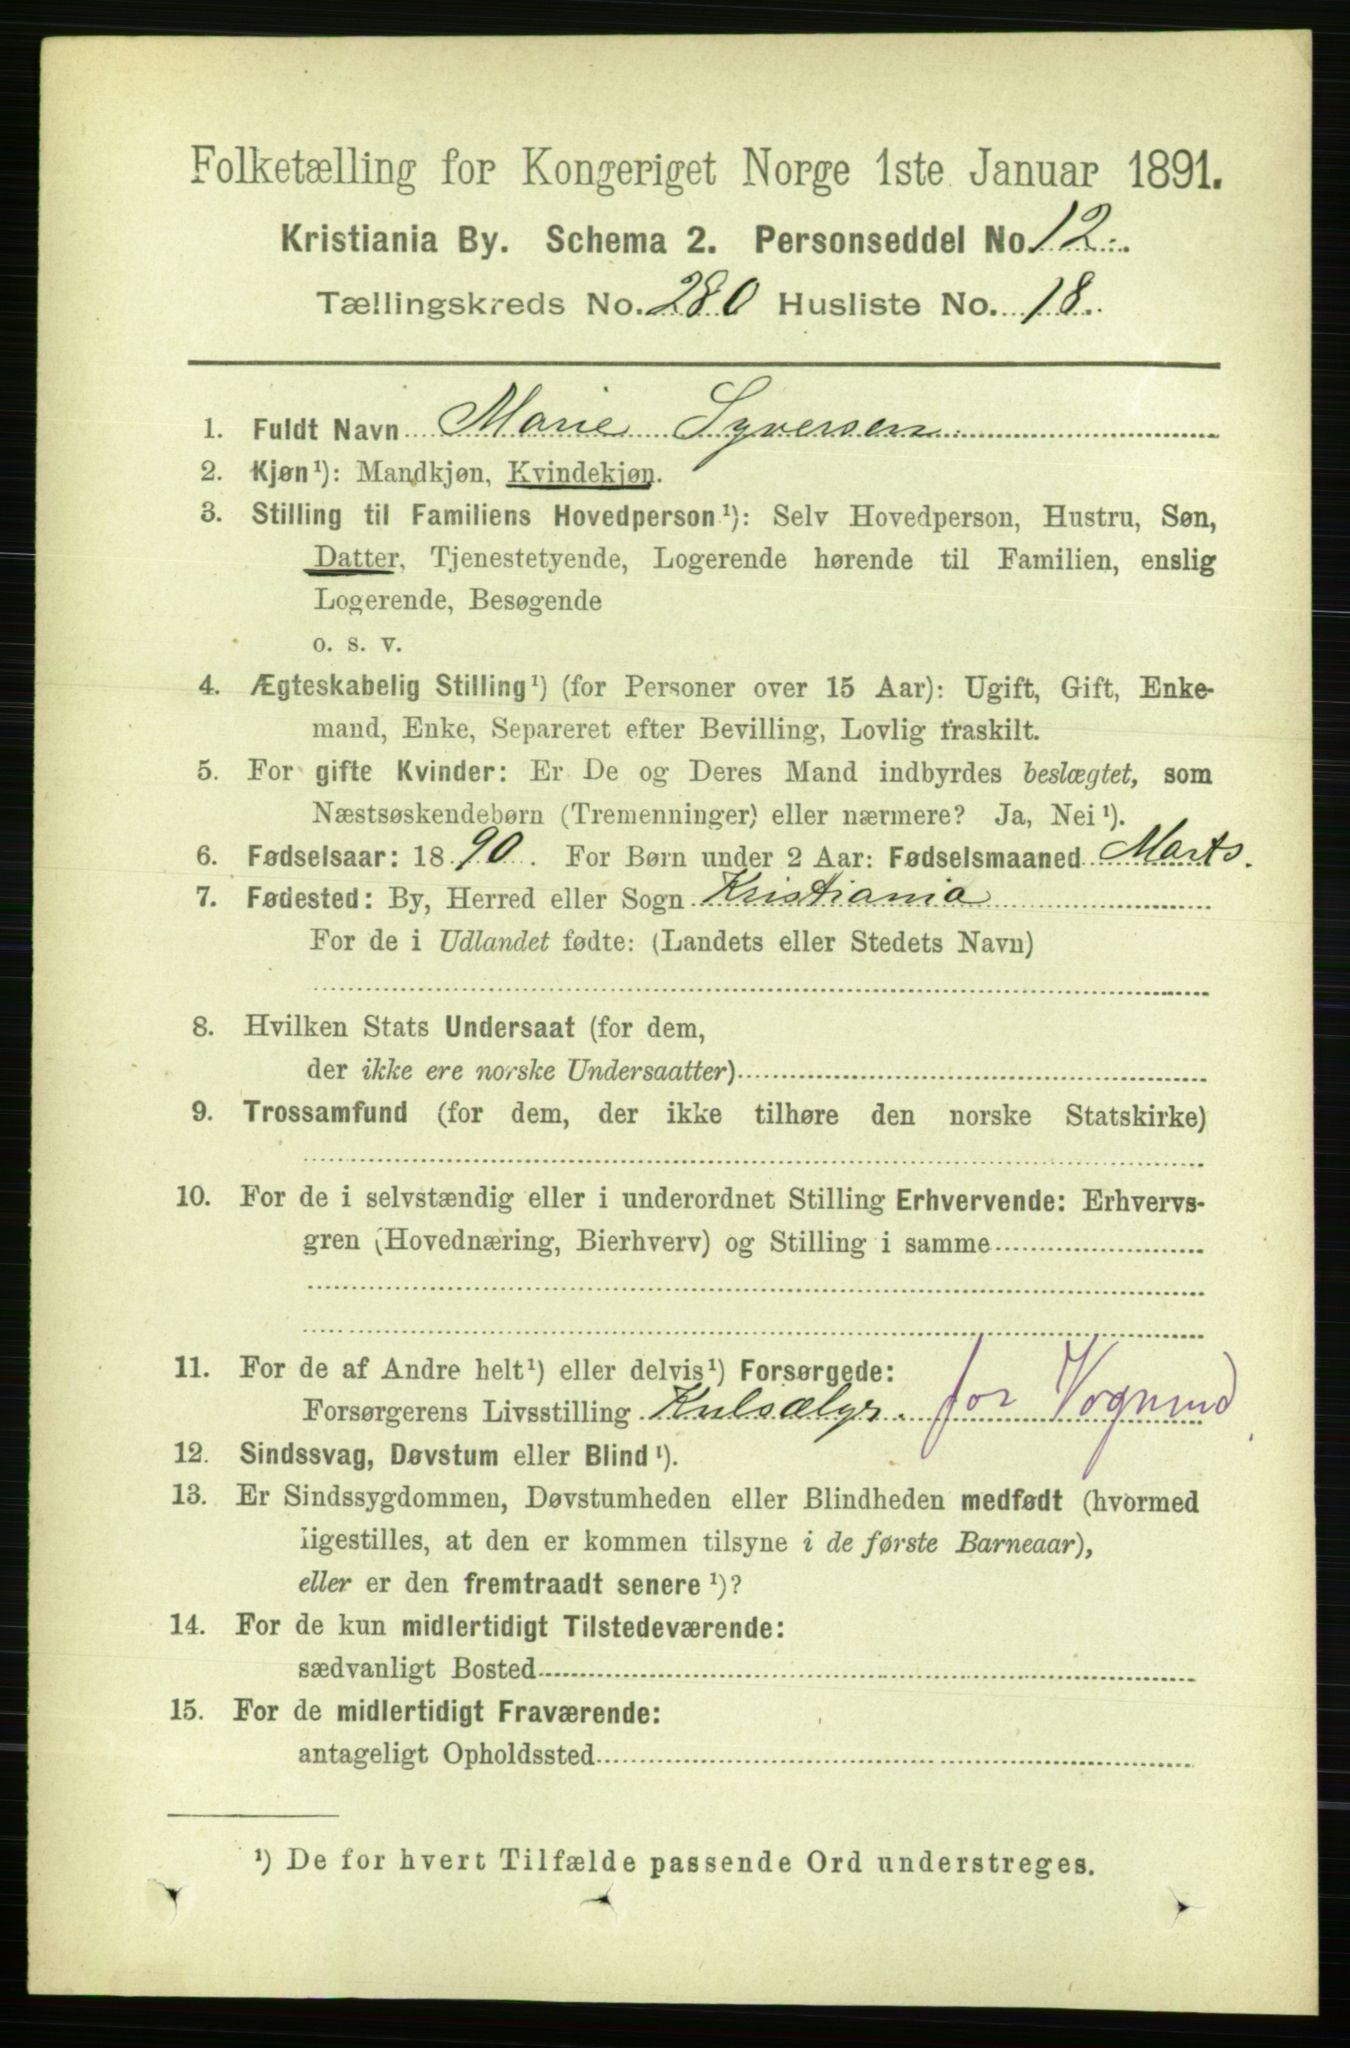 Folketælling for Kongeriget Norge 1ste Januar 1891.
Kristiania By. Schema 2. Personseddel No. 12.
Tællingskreds No. 280 Husliste No. 18.
1. Fuldt Navn Marie Syversen
2. Kjøn¹): Mandkjøn, Kvindekjøn.
3. Stilling til Familiens Hovedperson¹): Selv Hovedperson, Hustru, Søn,
Datter, Tjenestetyende, Logerende hørende til Familien, enslig
Logerende, Besøgende
o. s. v.
4. Ægteskabelig Stilling¹) (for Personer over 15 Aar): Ugift, Gift, Enke-
mand, Enke, Separeret efter Bevilling, Lovlig fraskilt.
5. For gifte Kvinder: Er De og Deres Mand indbyrdes beslægtet, som
Næstsøskendebørn (Tremenninger) eller nærmere? Ja, Nei¹).
6. Fødselsaar: 1890. For Børn under 2 Aar: Fødselsmaaned Marts.
7. Fødested: By, Herred eller Sogn Kristiania
For de i Udlandet fødte: (Landets eller Stedets Navn)
8. Hvilken Stats Undersaat (for dem,
der ikke ere norske Undersaatter)
9. Trossamfund (for dem, der ikke tilhøre den norske Statskirke)
10. For de i selvstændig eller i underordnet Stilling Erhvervende: Erhvervs-
gren (Hovednæring, Bierhverv) og Stilling i samme
11. For de af Andre helt¹) eller delvis¹) Forsørgede:
Forsørgerens Livsstilling for
12. Sindssvag, Døvstum eller Blind¹).
13. Er Sindssygdommen, Døvstumheden eller Blindheden medfødt (hvormed
ligestilles, at den er kommen tilsyne i de første Barneaar),
eller er den fremtraadt senere¹)?
14. For de kun midlertidigt Tilstedeværende:
sædvanligt Bosted
15. For de midlertidigt Fraværende:
antageligt Opholdssted
¹) De for hvert Tilfælde passende Ord understreges.